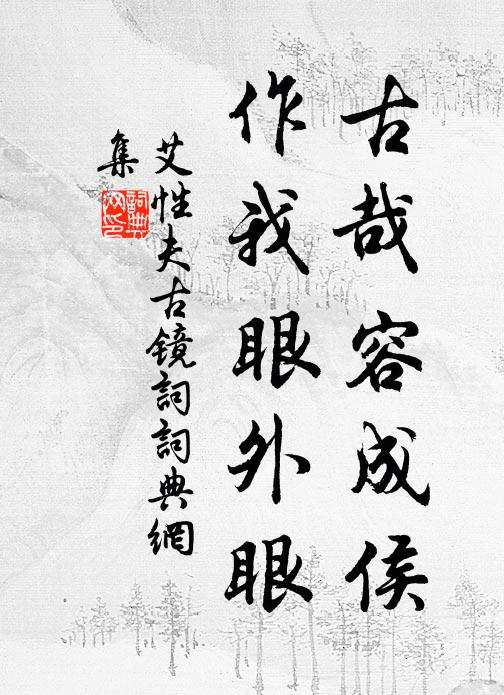 古哉容成侯
作我眼外眼
艾性夫古镜詞詞典網
集
詞典
网印